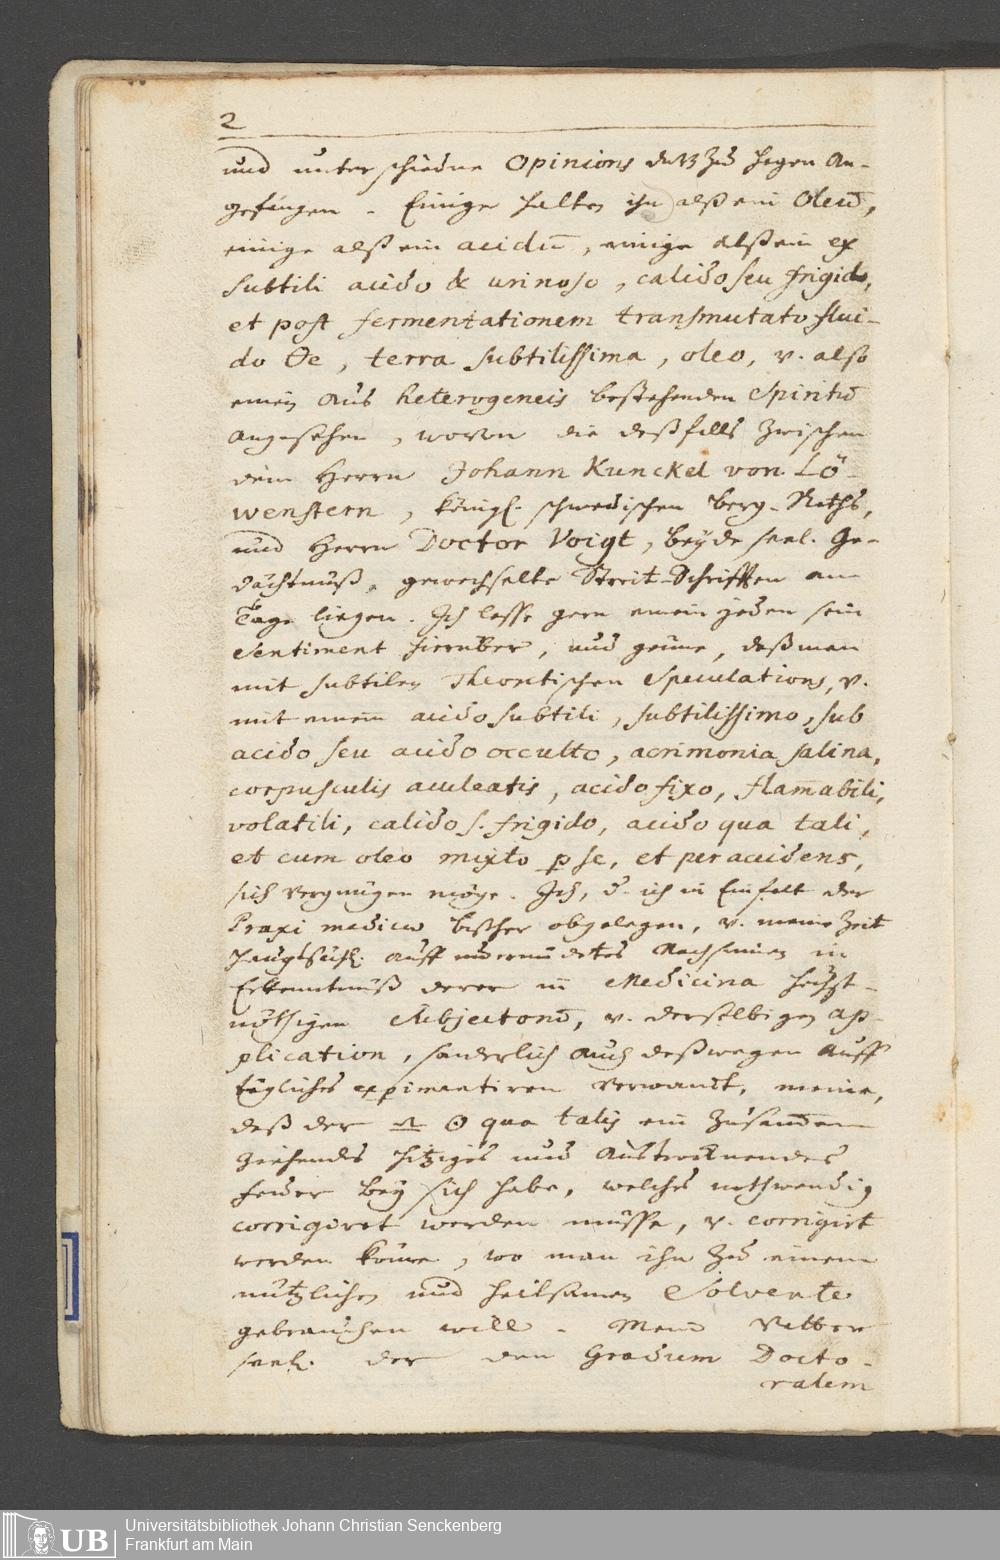 2
und unterschiedne Opinions davon zu hegen an-
gefangen. Einige halten ihn alß ein Oleū,
einige alß ein acidū, einige alß ein ex
subtili acido & urinoso, calido seu frigido,
et post fermentationem transmutato flui-
do Oe, terra subtilissima, oleo, v. also
einen aus heterogeneis bestehenden Spiritū
angesehen, wovon die deßfalls zwischen
dem Herrn Johann Kunckel von Lö-
wenstern, königl. schwedischen Berg-Raths,
und Herrn Doctor Voigt, beyde seel. Ge-
dächtnuß, gewechselte Streit-Schrifften am
Tage liegen. Ich lasse gern einem jeden sein
Sentiment hierüber, und gönne, daß man
mit subtilen Theoretischen Speculations, v.
mit einem acido subtili, subtilissimo, sub
acido seu acido occulto, acrimonia salina,
corpusculis aculeatis, acido fixo, flam̄abili,
volatili, calido s. frigido, acido qua tali,
et cum oleo mixto p se, et per accidens,
sich vergnügen möge. Ich, d. ich in Einfalt der
Praxi medicæ bißher obgelegen, v. meine Zeit
hauptsächl. auff unermüdetes Nachsinnen in
Erkenntnüß derer in Medicina höchst-
nöthigen Subjectorū, v. derselbigen ap-
plication, sonderlich auch deßwegen auff
tägliches expimentiren verwandt, meine,
daß der O qua talis ein zusam̄en
ziehendes hitziges und austrocknendes
feuer bey sich habe, welches nothwendig
corrigiret werden müsse, v. corrigirt
werden kön̄e, wo man ihn zu einem
nützlichen und heilsamen Solvente
gebrauchen will. Mein Vetter
seel. der den Gradum Docto-
ralem
UB
Universitätsbibliothek Johann Christian Senckenberg
Frankfurt am Main